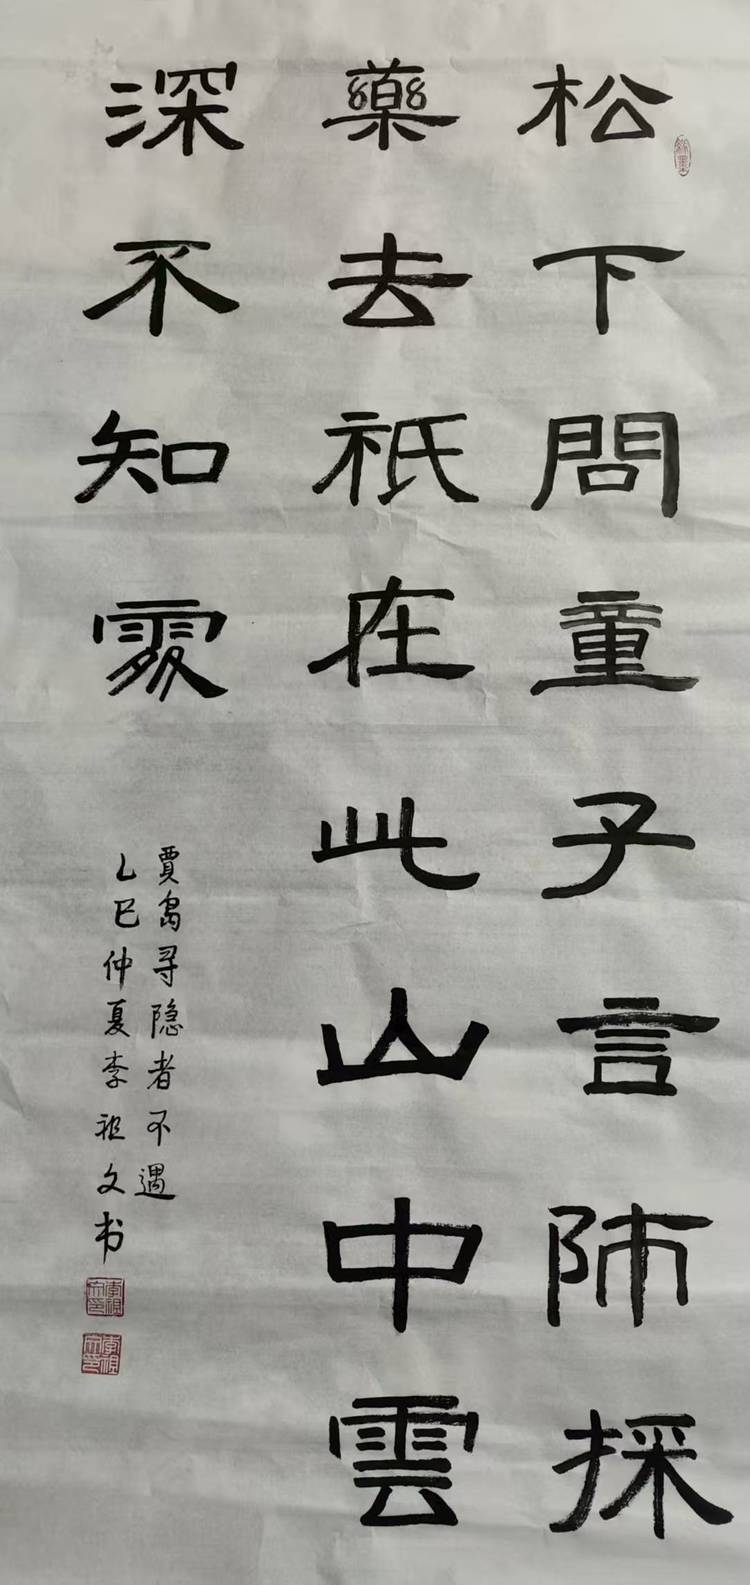 松下問童子言師採
藥去祇在此山中雲
深不知處
賈島寻隐者不遇
乙巳仲夏李祖文书